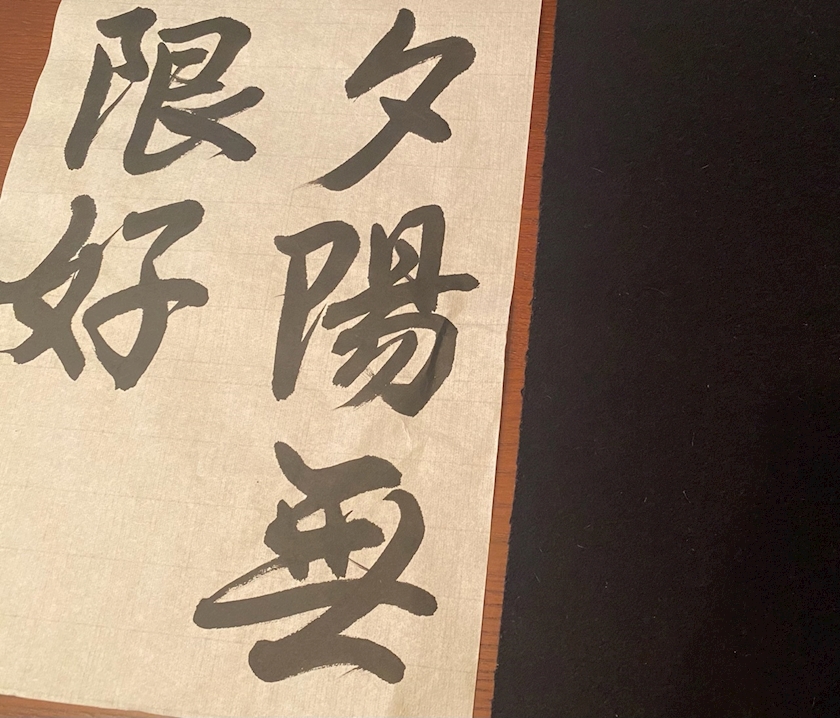 夕陽無
限好